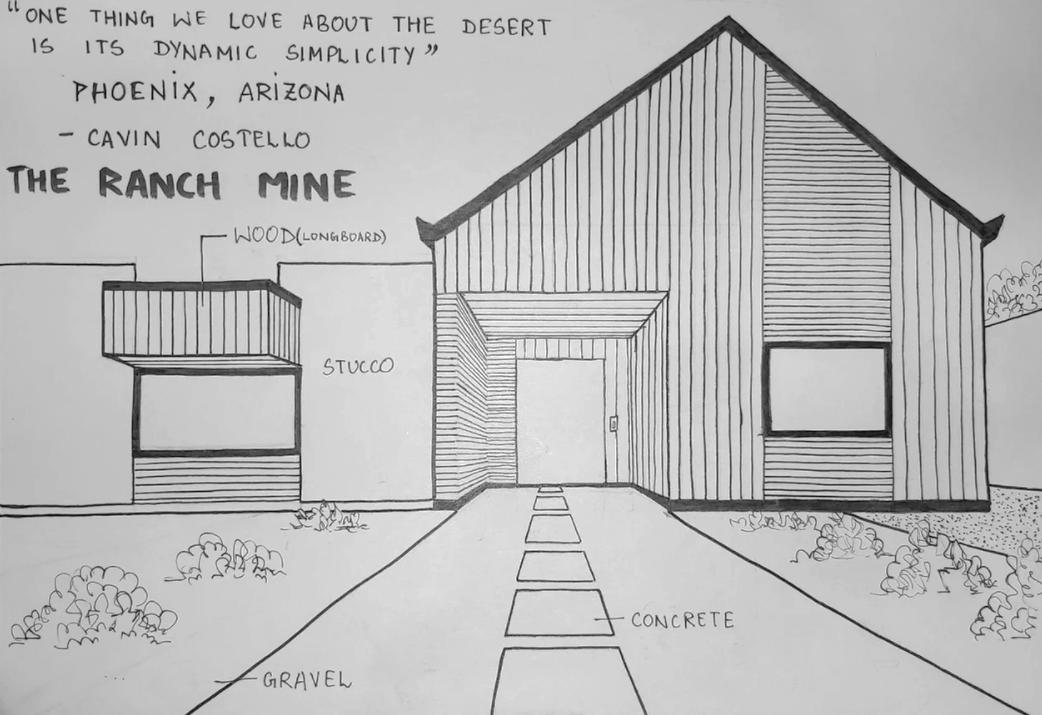 "ONE THING WE LOVE ABOUT THE DESERT
IS ITS DYNAMIC SIMPLICITY"
PHOENIX, ARIZONA
- CAVIN COSTELLO
THE RANCH MINE
WOOD(LONGBOARD)
STUCCO
CONCRETE
GRAVEL